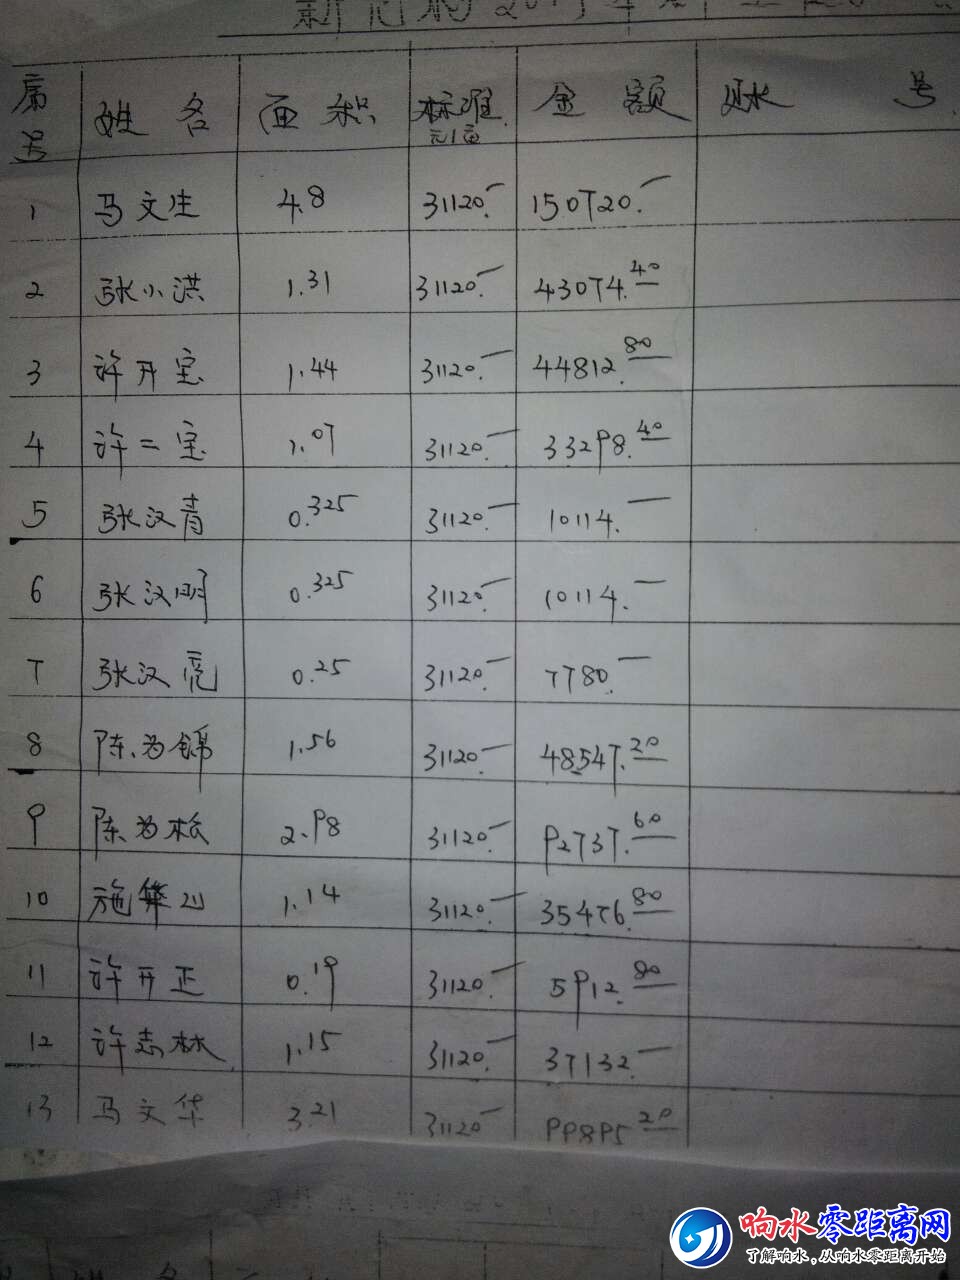 序号 姓名 面积 标准 元/亩 金额 账号
1 马文生 4.8 31120.— 150720.—
2 张小洪 1.31 31120.— 43074.40
3 许开宝 1.44 31120.— 44812.80
4 许二宝 1.07 31120.— 33298.40
5 张汉青 0.325 31120.— 10114.—
6 张汉明 0.325 31120.— 10114.—
7 张汉亮 0.25 31120.— 7780.—
8 陈为锦 1.56 31120.— 48547.20
9 陈为松 2.98 31120.— 92737.60
10 施华山 1.14 31120.— 35476.80
11 许开正 0.19 31120.— 5912.80
12 许志林 1.15 31120.— 37132.—
13 马文华 3.21 31120— 99895.20
响水零距离网
了解响水,从响水零距离开始